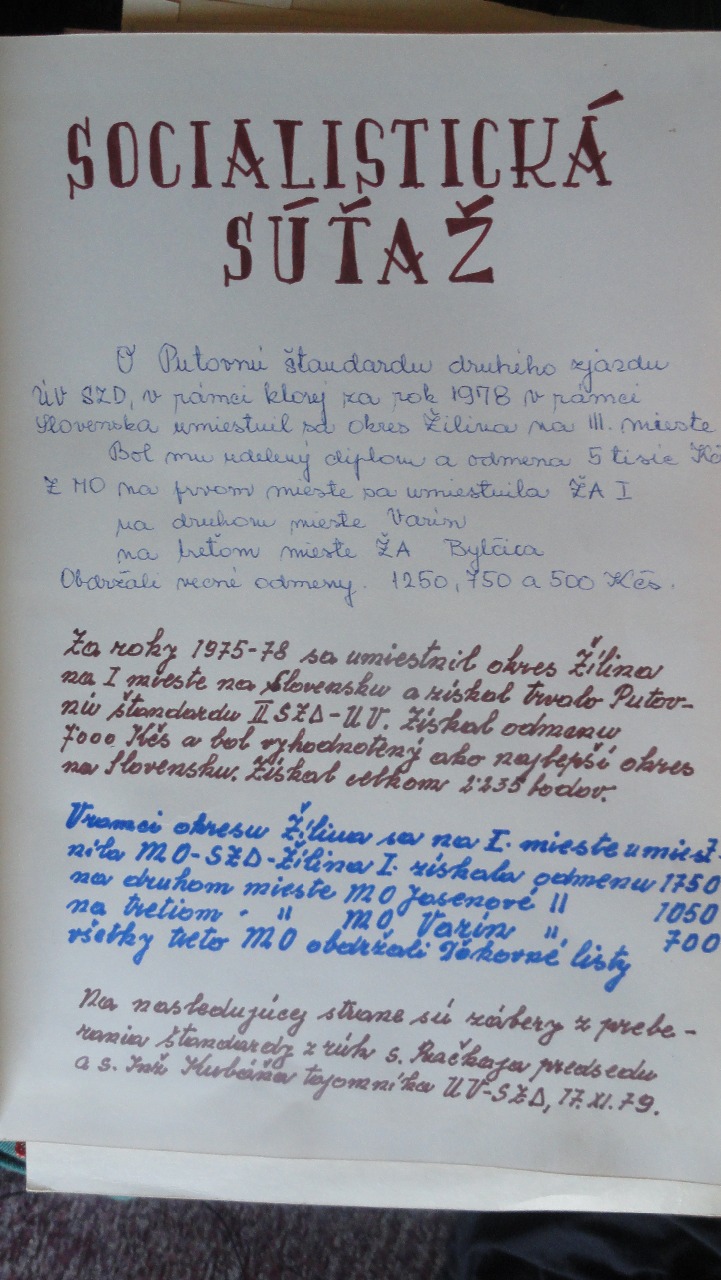 SOCIALISTICKÁ
SÚŤAŽ
O Putovnú štandardu druhého zjazdu
ÚV SZD, v rámci ktorej za rok 1978 v rámci
Slovenska umiestnil sa okres Žilina na III. mieste
Bol mu udelený diplom a odmena 5 tisíc Kčs
Z MO na prvom mieste sa umiestnila ŽA I
na druhom mieste Varín
na treťom mieste ŽA Bytčica
Obdržali vecné odmeny. 1250, 750 a 500 Kčs.
Za roky 1975-78 sa umiestnil okres Žilina
na I mieste na Slovensku a získal trvalo Putov-
nú štandardu II SZD-UV. Získal odmenu
7000 Kčs a bol vyhodnotený ako najlepší okres
na Slovensku. Získal celkom 2235 bodov.
Vramci okresu Žilina sa na I. mieste umiest-
nila MO-SZD-Žilina I. získala odmenu 1750
na druhom mieste MO Jasenové " 1050
na tretiom " MO Varín " 700
všetky tieto MO obdržali Ďakovné listy
Na nasledujúcej strane sú zábery z prebe-
rania štandardy z rúk s. Račkaja predsedu
a s. Inž Kubáňa tajomníka UV-SZD, 17.XI.79.